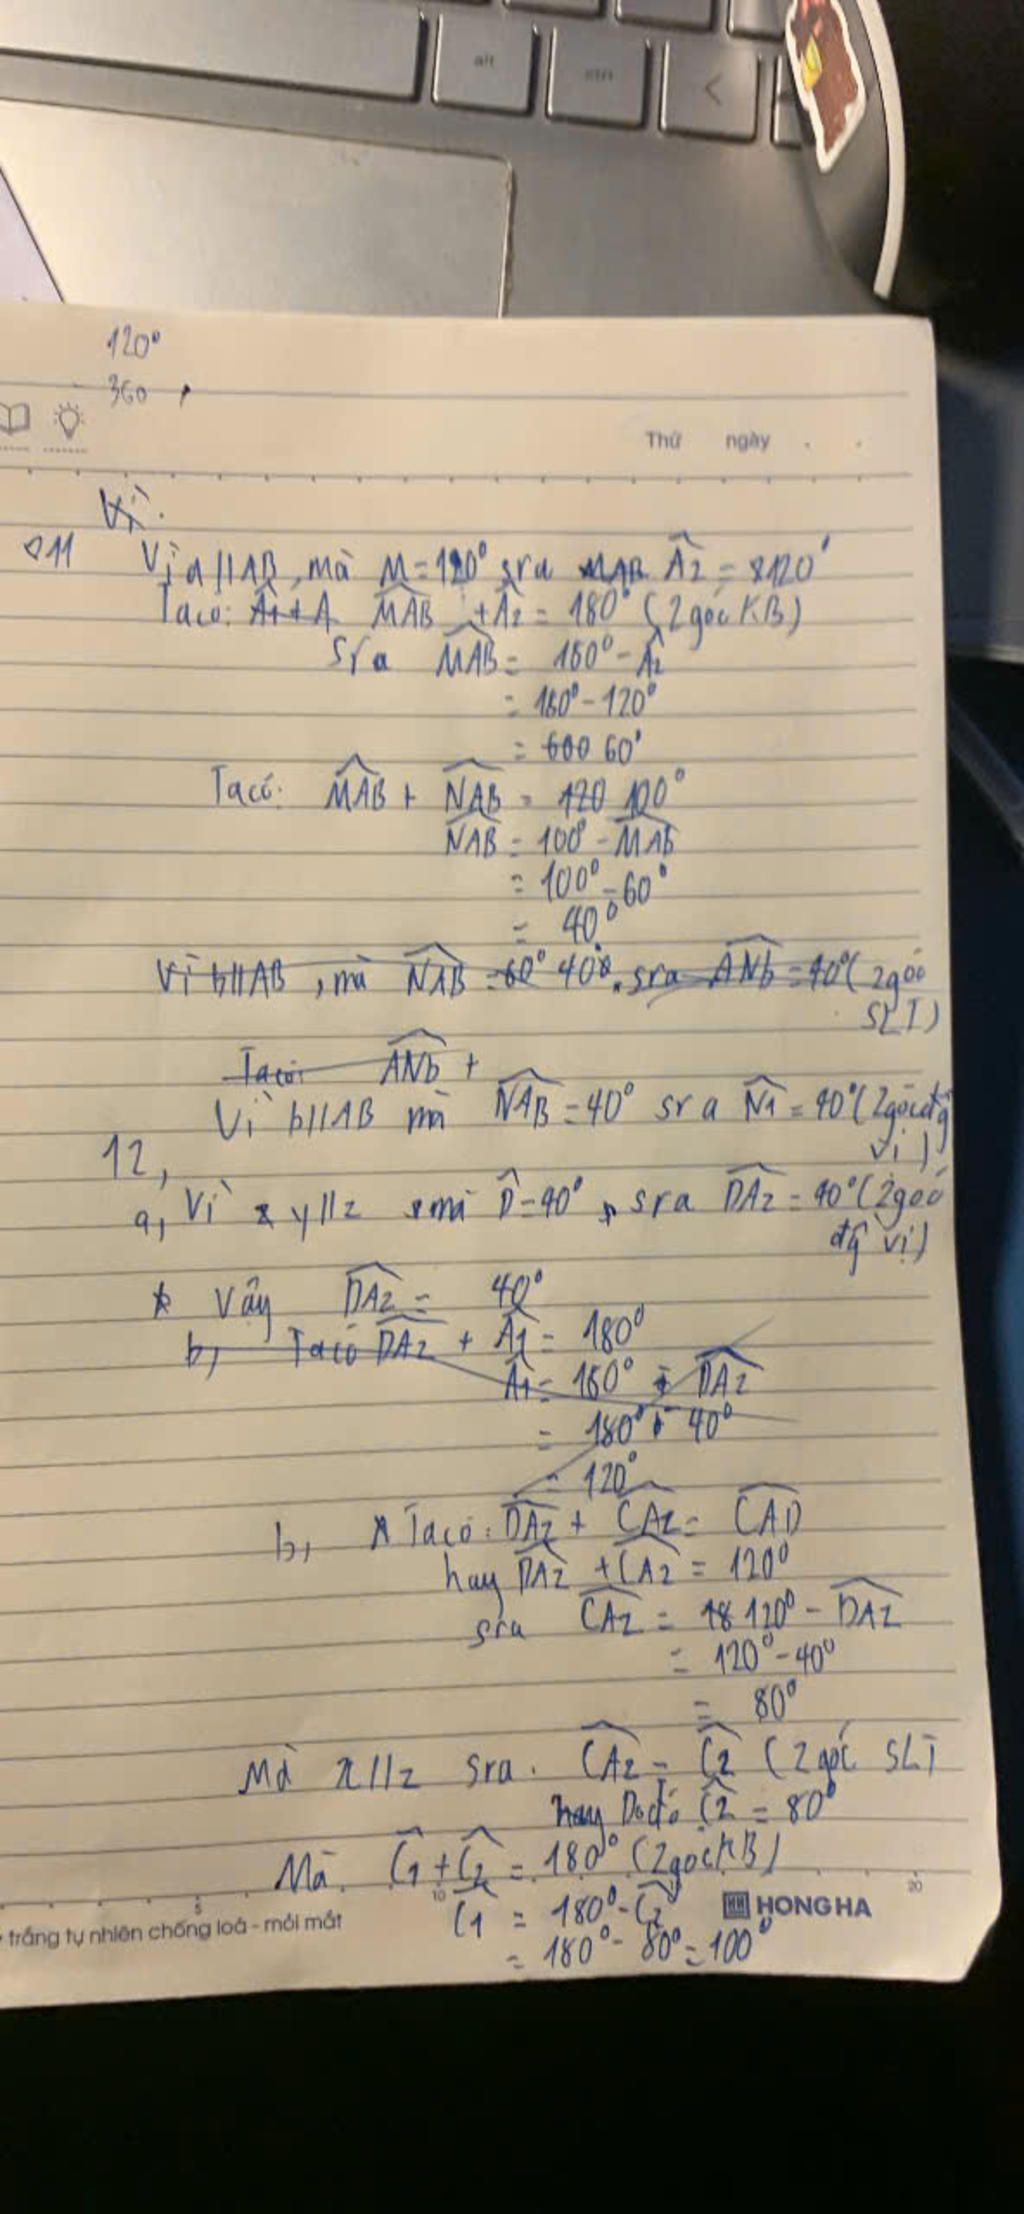 alt
ctrl
<
120°
360
Thứ ngày
Vì
11 Vì a//AB, mà M=120° sra MAB A2 = 120°
Ta có: A1+A MAB + A2 = 180° (2góc KB)
sra MAB = 180° - A2
= 180° - 120°
= 600 60°
Ta có: MAB + NAB = 120 100°
NAB = 100° - MAB
= 100° - 60°
= 40°
Vì b//AB, mà NAB = 60° 40°, sra ANb = 40° (2góc
SLT)
Ta có: ANb +
Vì b//AB mà NAB = 40° sra N1 = 40° (2góc đg
vị)
12,
a, Vì x y//z mà D=40° sra DAz = 40° (2góc
đg vị)
* Vậy DAz = 40°
b, Ta có DAz + A1 = 180°
A1 = 180° - DAz
= 180° - 40°
= 120°
b, * Ta có: DAz + CAz = CAD
hay DAz + CAz = 120°
sra CAz = 18 120° - DAz
= 120° - 40°
= 80°
Mà x//z sra. CAz = C2 (2 góc SLT
hay Do đó C2 = 80°
Mà C1 + C2 = 180° (2góc KB)
C1 = 180° - C2
= 180° - 80° = 100°
5 10 20
trắng tự nhiên chống loá - mỏi mắt
HH HONG HA